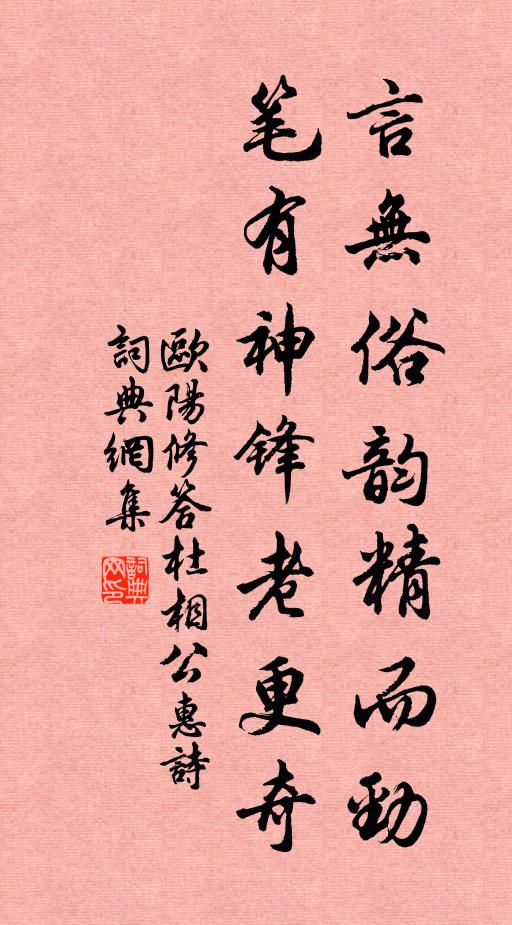 言無俗韵精而勁
笔有神锋老更奇
歐陽修答杜相公惠詩
詞典網集
詞典网印